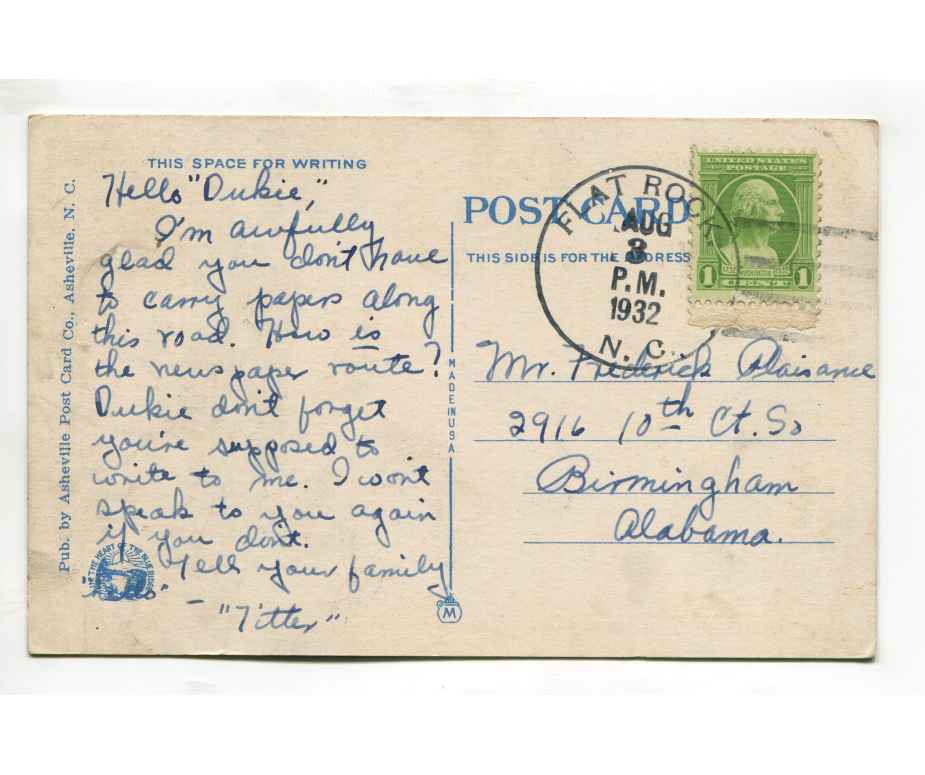 THIS SPACE FOR WRITING
Hello "Dukie",
I'm awfully
glad you don't have
to carry papers along
this road. How is
the newspaper route?
Dukie don't forget
you're supposed to
write to me. I won't
speak to you again
if you don't.
Tell your family
- "Titter"
Pub. by Asheville Post Card Co., Asheville, N. C.
IN THE HEART OF THE BLUE RIDGE
MADE IN USA
M
POST CARD
THIS SIDE IS FOR THE ADDRESS
FLAT ROCK
AUG
3
P.M.
1932
N. C.
UNITED STATES
POSTAGE
1 CENT 1
Mr. Frederick Plaisance
2916 10th Ct. So
Birmingham
Alabama.